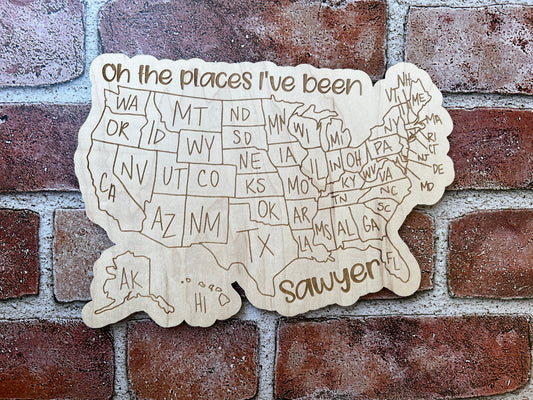 Oh the places I've been
WA MT ND MN WI MI VT NH ME
OR ID WY SD IA NY MA
NV UT CO NE IL IN OH PA RI
CA KS MO KY WV VA CT
AZ NM OK AR TN NC NJ DE
TX LA MS AL GA SC MD
AK HI FL
Sawyer